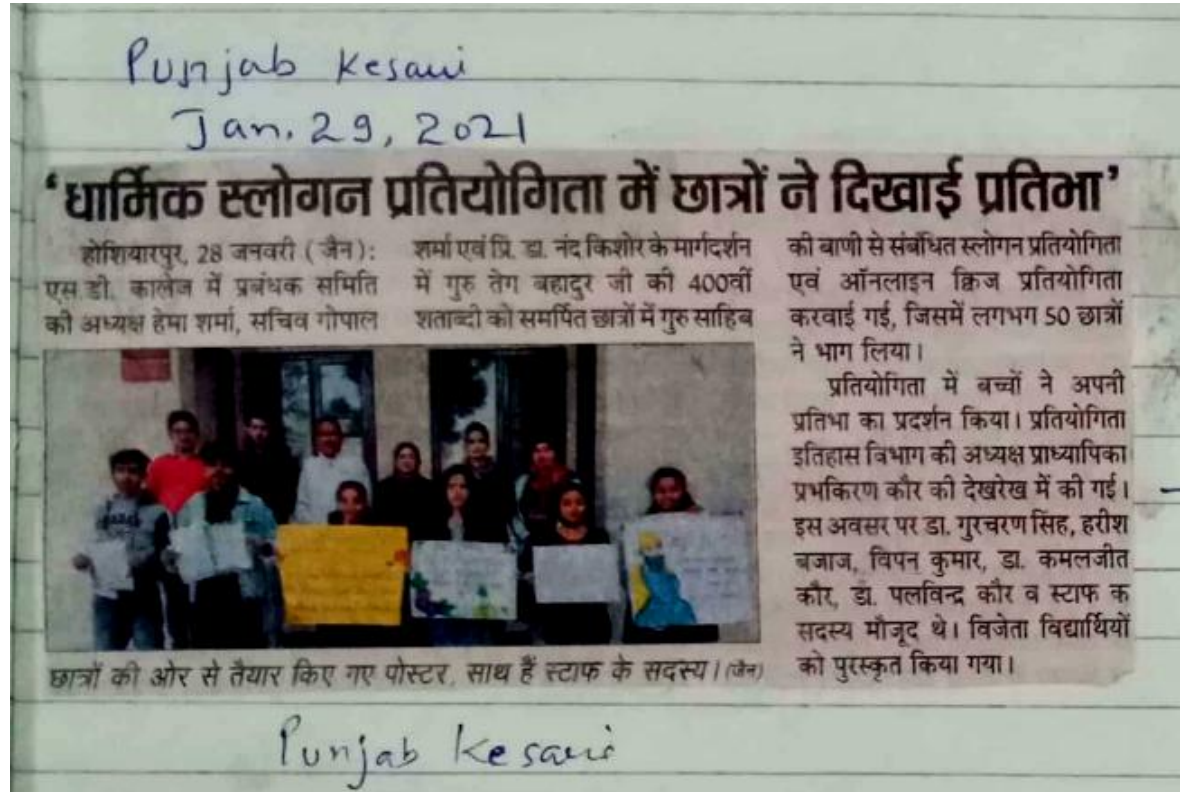 Punjab Kesari
Jan. 29, 2021
‘धार्मिक स्लोगन प्रतियोगिता में छात्रों ने दिखाई प्रतिभा’
होशियारपुर, 28 जनवरी (जैन):
एस.डी. कालेज में प्रबंधक समिति
की अध्यक्ष हेमा शर्मा, सचिव गोपाल
शर्मा एवं प्रि. डा. नंद किशोर के मार्गदर्शन
में गुरु तेग बहादुर जी की 400वीं
शताब्दी को समर्पित छात्रों में गुरु साहिब
की बाणी से संबंधित स्लोगन प्रतियोगिता
एवं ऑनलाइन क्विज प्रतियोगिता
करवाई गई, जिसमें लगभग 50 छात्रों
ने भाग लिया।
प्रतियोगिता में बच्चों ने अपनी
प्रतिभा का प्रदर्शन किया। प्रतियोगिता
इतिहास विभाग की अध्यक्ष प्राध्यापिका
प्रभकिरण कौर की देखरेख में की गई।
इस अवसर पर डा. गुरचरण सिंह, हरीश
बजाज, विपन कुमार, डा. कमलजीत
कौर, डा. पलविन्द्र कौर व स्टाफ क
सदस्य मौजूद थे। विजेता विद्यार्थियों
को पुरस्कृत किया गया।
छात्रों की ओर से तैयार किए गए पोस्टर, साथ हैं स्टाफ के सदस्य। (जैन)
Punjab Kesari